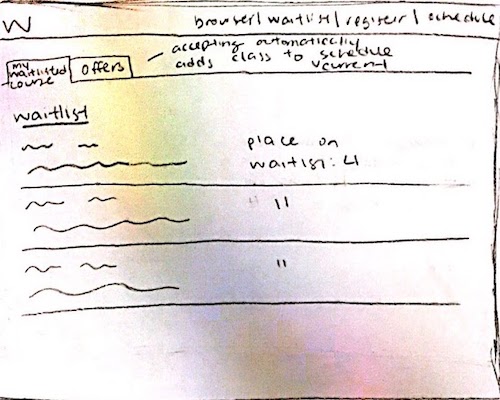 W
browser/ waitlist/ register/ schedule
my waitlisted course
offers
accepting automatically
adds class to schedule
current
waitlist
place on
waitlist: 4
"
"